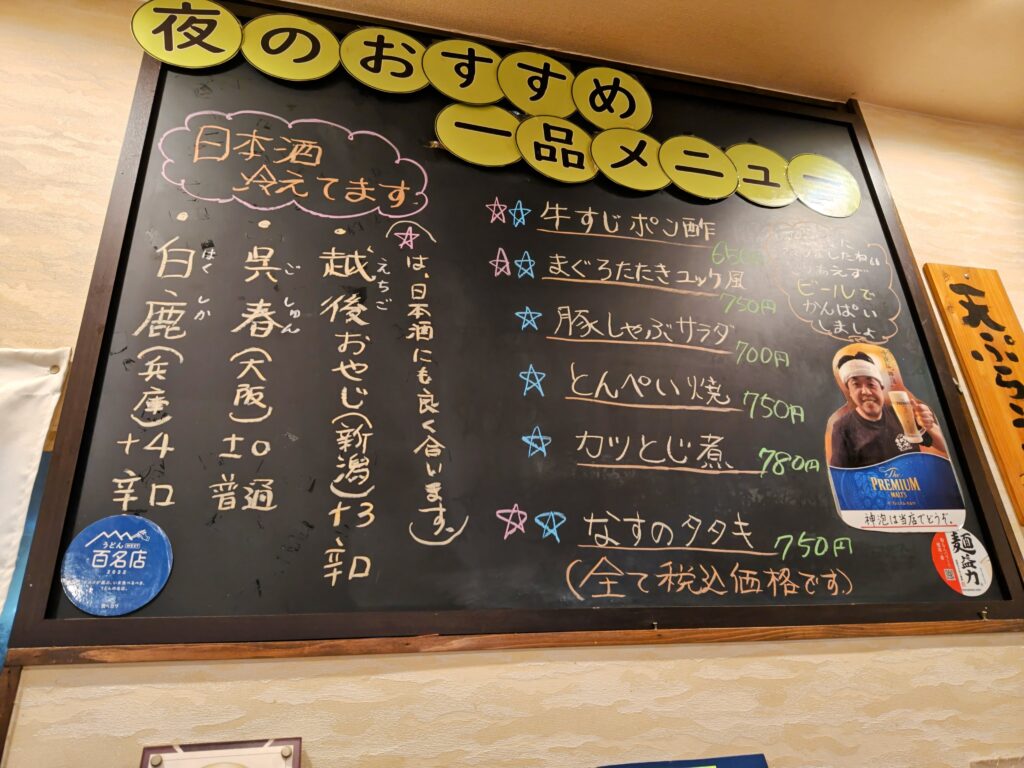 夜のおすすめ
一品メニュー
日本酒
冷えてます。
☆は、日本酒にも良く合います。
越後おやじ(新潟)+3 辛口
えちご
呉春(大阪)±0 普通
ごしゅん
白鹿(兵庫)+4 辛口
はくしか
☆☆牛すじポン酢
650円
☆☆まぐろたたきユッケ風
750円
☆豚しゃぶサラダ
700円
☆とんぺい焼
750円
☆カツとじ煮 780円
☆☆なすのタタキ 750円
(全て税込価格です)
ビールで
かんぱい
しましょ
The
PREMIUM
MALT'S
神泡は当店でどうぞ。
うどん
百名店
2022
麺
力
天ぷら